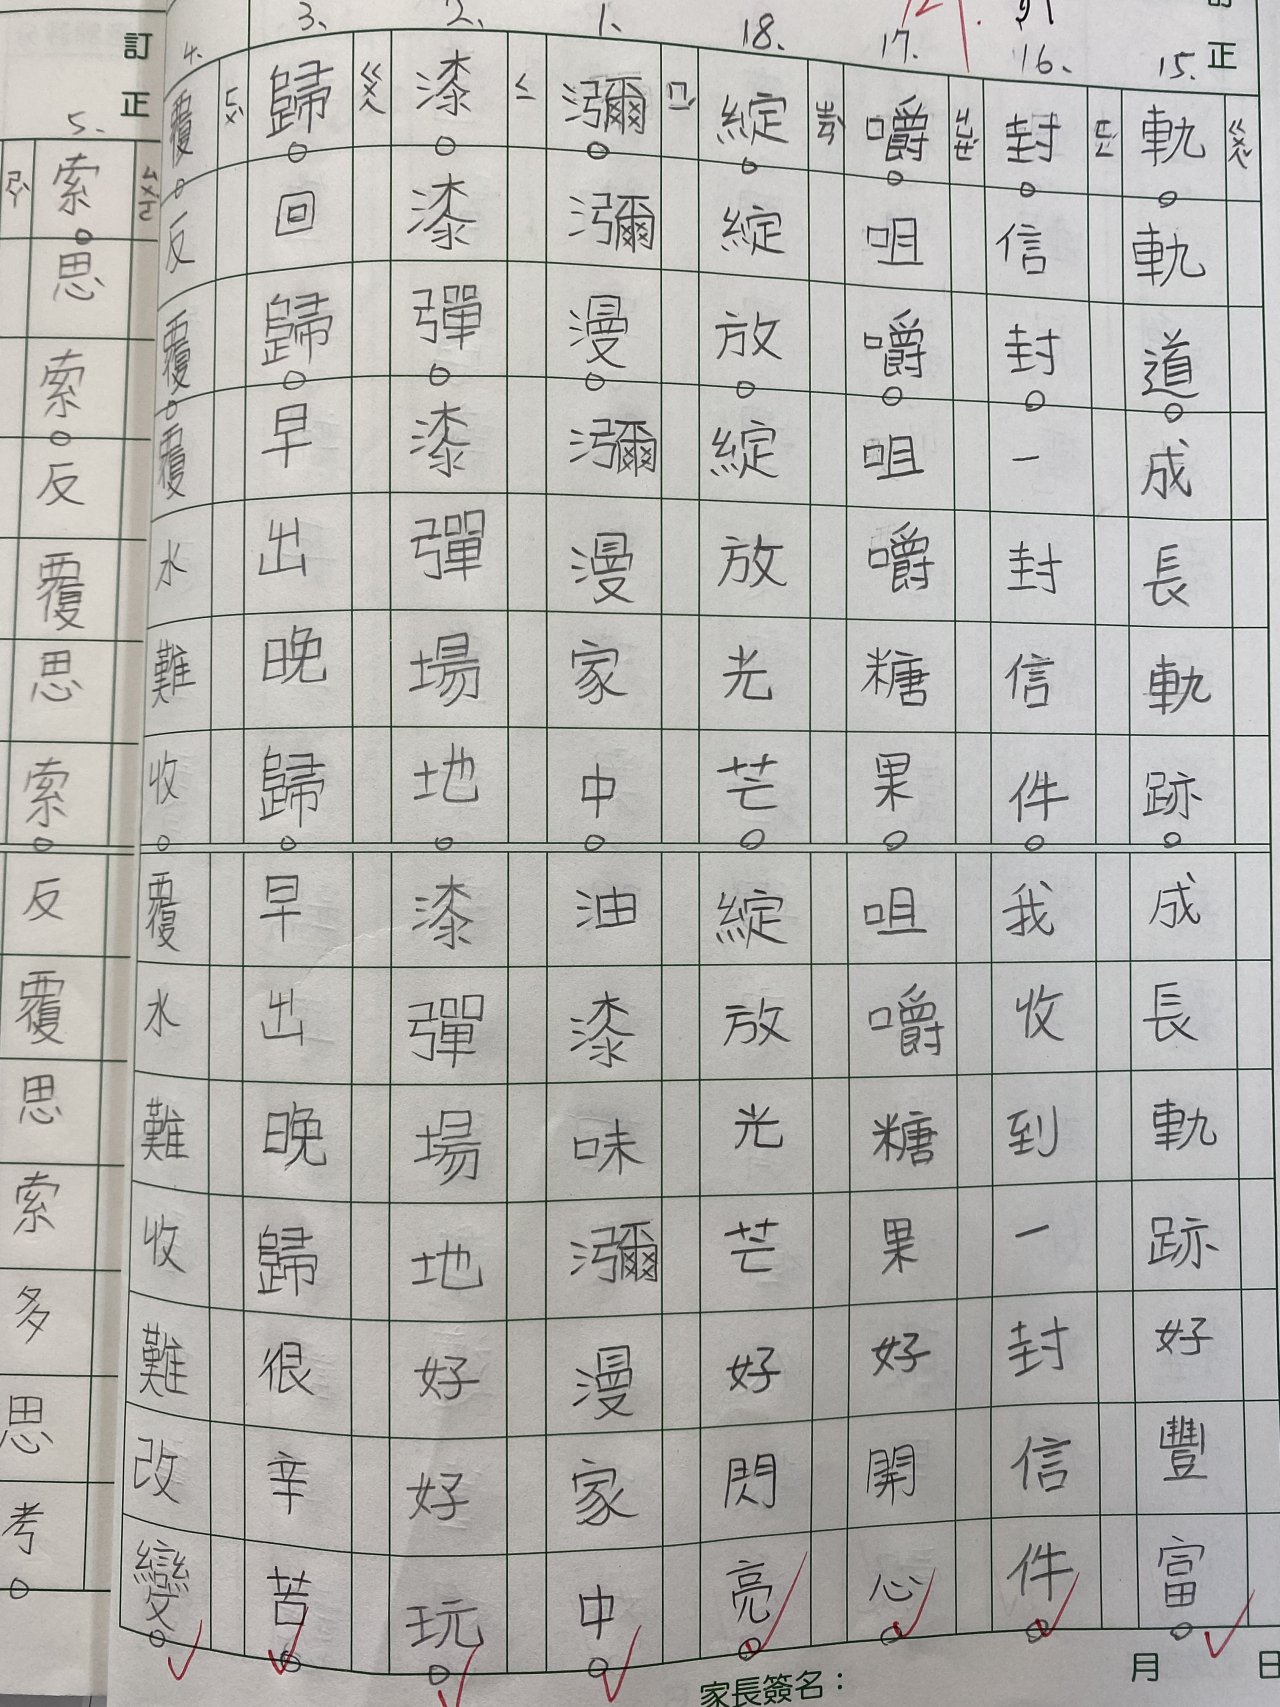 訂正
15.
軌。軌道。成長軌跡。成長軌跡好豐富。
ㄍㄨㄟˇ
16.
封。信封。一封信件。我收到一封信件。
ㄈㄥ
17.
嚼。咀嚼。咀嚼糖果。咀嚼糖果好開心。
ㄐㄩㄝˊ
18.
綻。綻放。綻放光芒。綻放光芒好閃亮。
ㄓㄢˋ
1.
瀰。瀰漫。瀰漫家中。油漆味瀰漫家中。
ㄇㄧˊ
2.
漆。漆彈。漆彈場地。漆彈場地好好玩。
ㄑㄧ
3.
歸。回歸。早出晚歸。早出晚歸很辛苦。
ㄍㄨㄟ
4.
覆。反覆。覆水難收。覆水難收難改變。
ㄈㄨˋ
訂正
5.
索。思索。反覆思索。反覆思索多思考。
ㄙㄨㄛˇ
家長簽名：
月 日